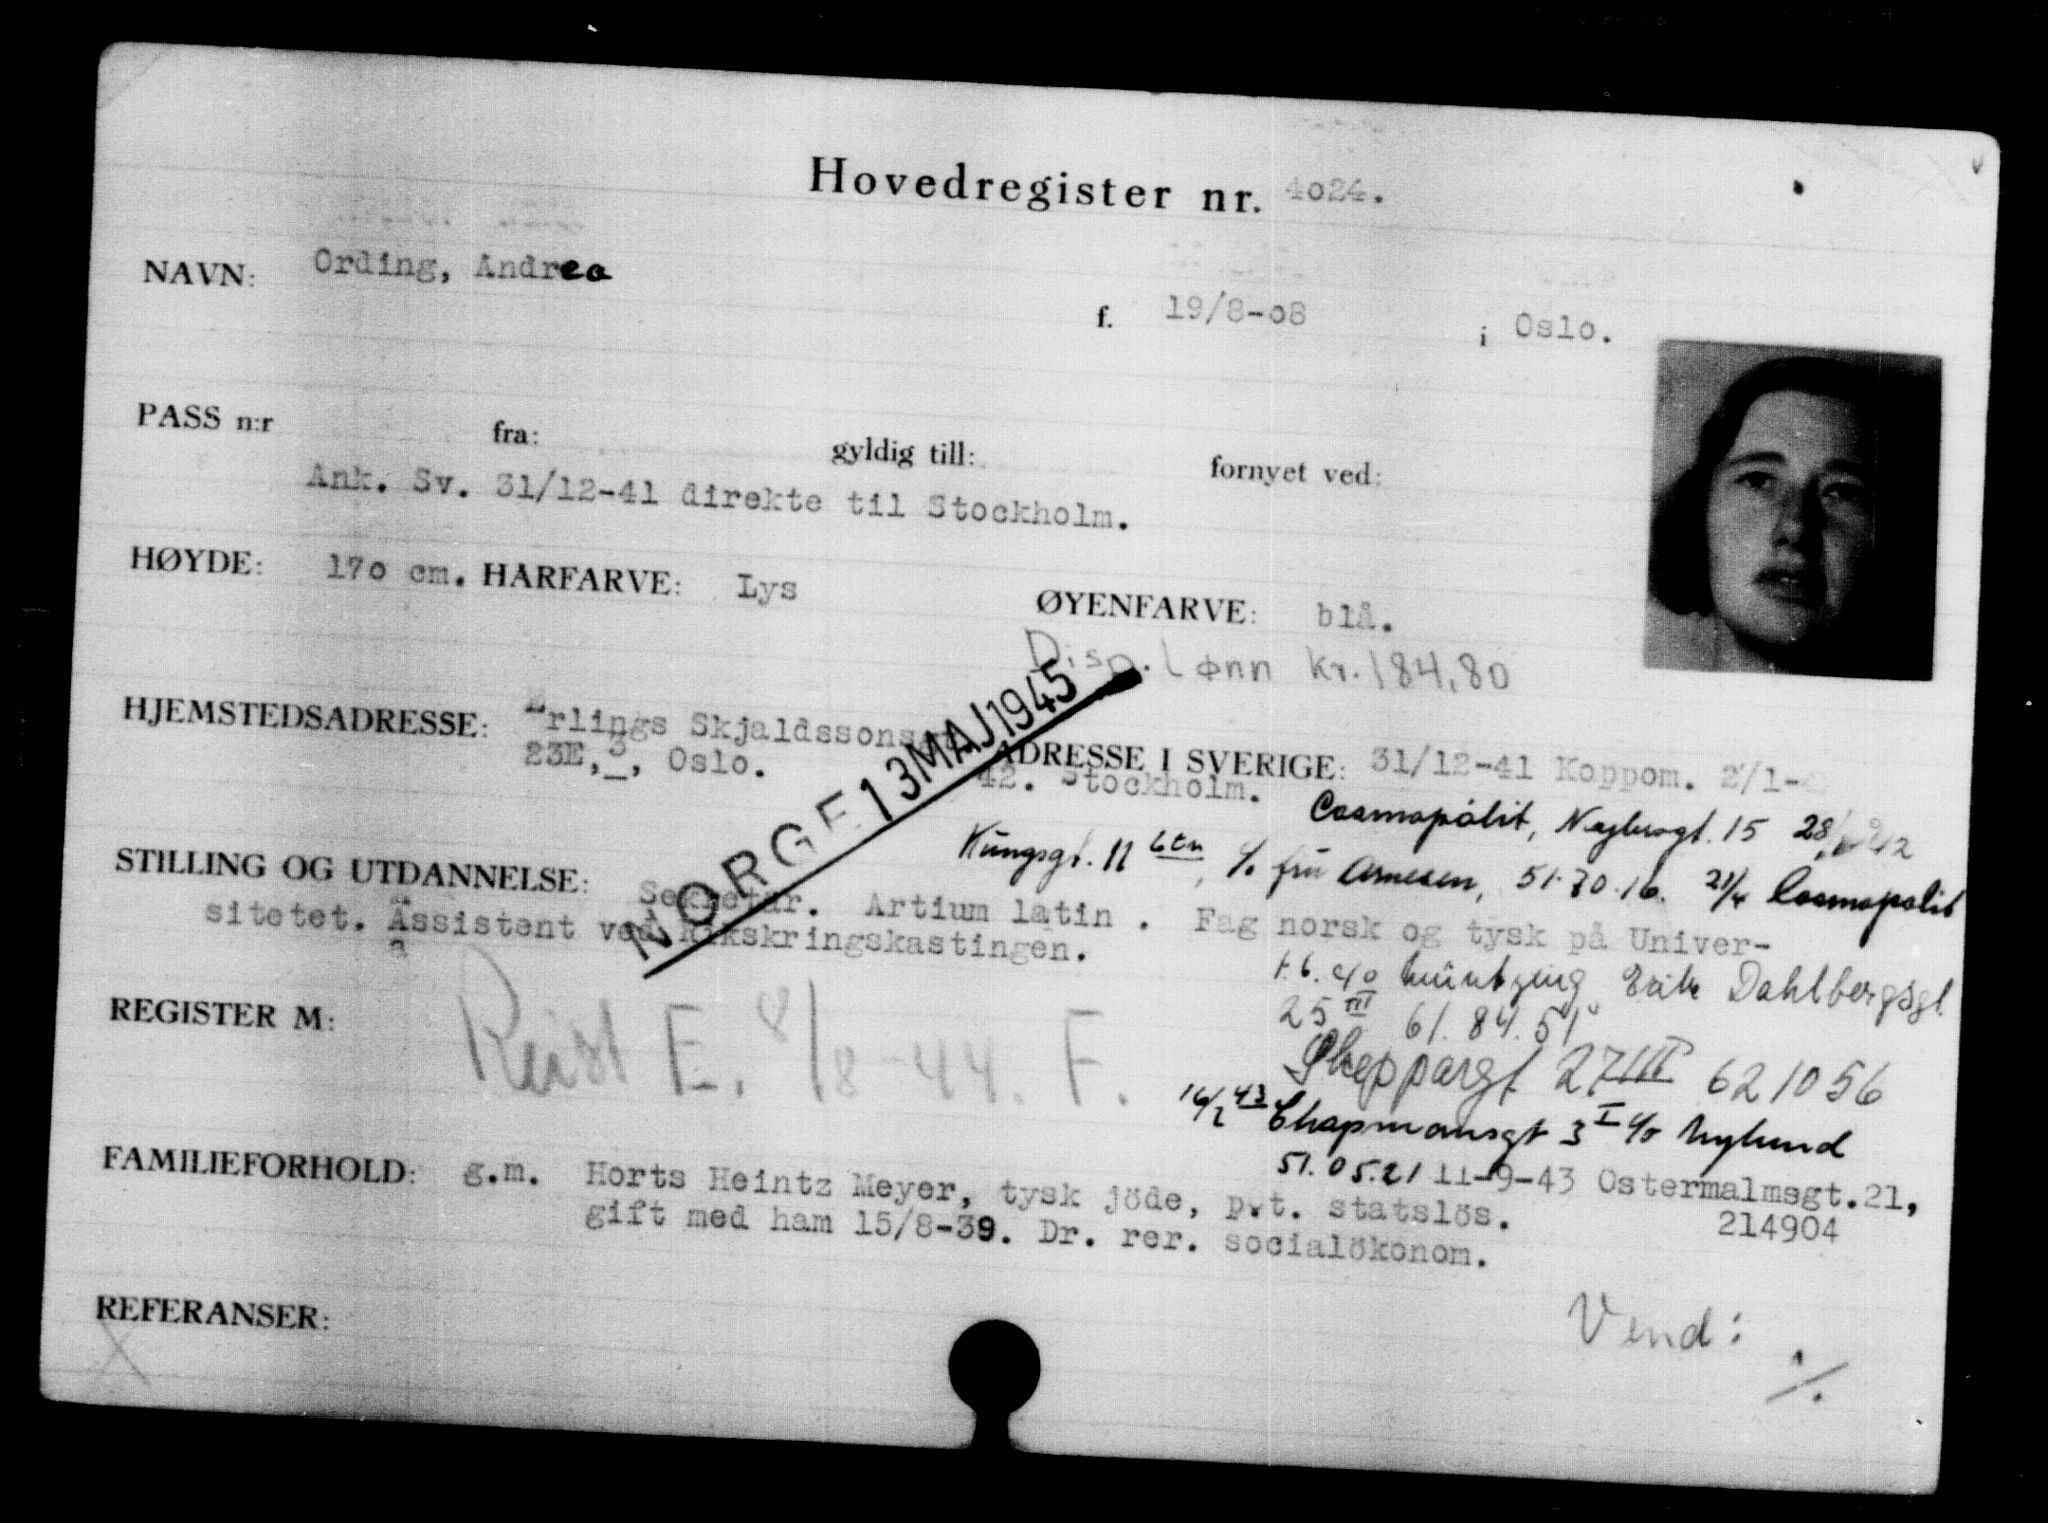 Hovedregister nr. 4024.
NAVN: Ording, Andrea
f. 19/8-08 i Oslo.
PASS n:r fra: gyldig till: fornyet ved:
Ank. Sv. 31/12-41 direkte til Stockholm.
HØYDE: 170 cm. HÅRFARVE: Lys ØYENFARVE: blå.
Disp. lønn kr. 184,80
HJEMSTEDSADRESSE: Erlings Skjaldssonsgt.
23E, 3, Oslo.
NORGE 13 MAJ 1945
ADRESSE I SVERIGE: 31/12-41 Koppom. 2/1-
42. Stockholm.
Cosmopolit, Nybrogt. 15 28/ 42
Kungsgt. 11 6tr, c/o fru Arnesen, 51.70.16. 21/4 Cosmopolit
STILLING OG UTDANNELSE: Sekretær. Artium latin. Fag norsk og tysk på Univer-
sitetet. Assistent ved Rikskringskastingen.
a
1.6. Erik Dahlbergsgt.
25 III 61.84.51
REGISTER M: Reist E. 8/8-44. F.
Skeppargt 27 III 621056
16/2 43 Chapmansgt 3 I c/o Nylund
51.05.21 11-9-43 Ostermalmsgt. 21,
214904
FAMILIEFORHOLD: g.m. Horts Heintz Meyer, tysk jöde, p.t. statslös.
gift med ham 15/8-39. Dr. rer. socialökonom.
REFERANSER:
X
Vend:
./.